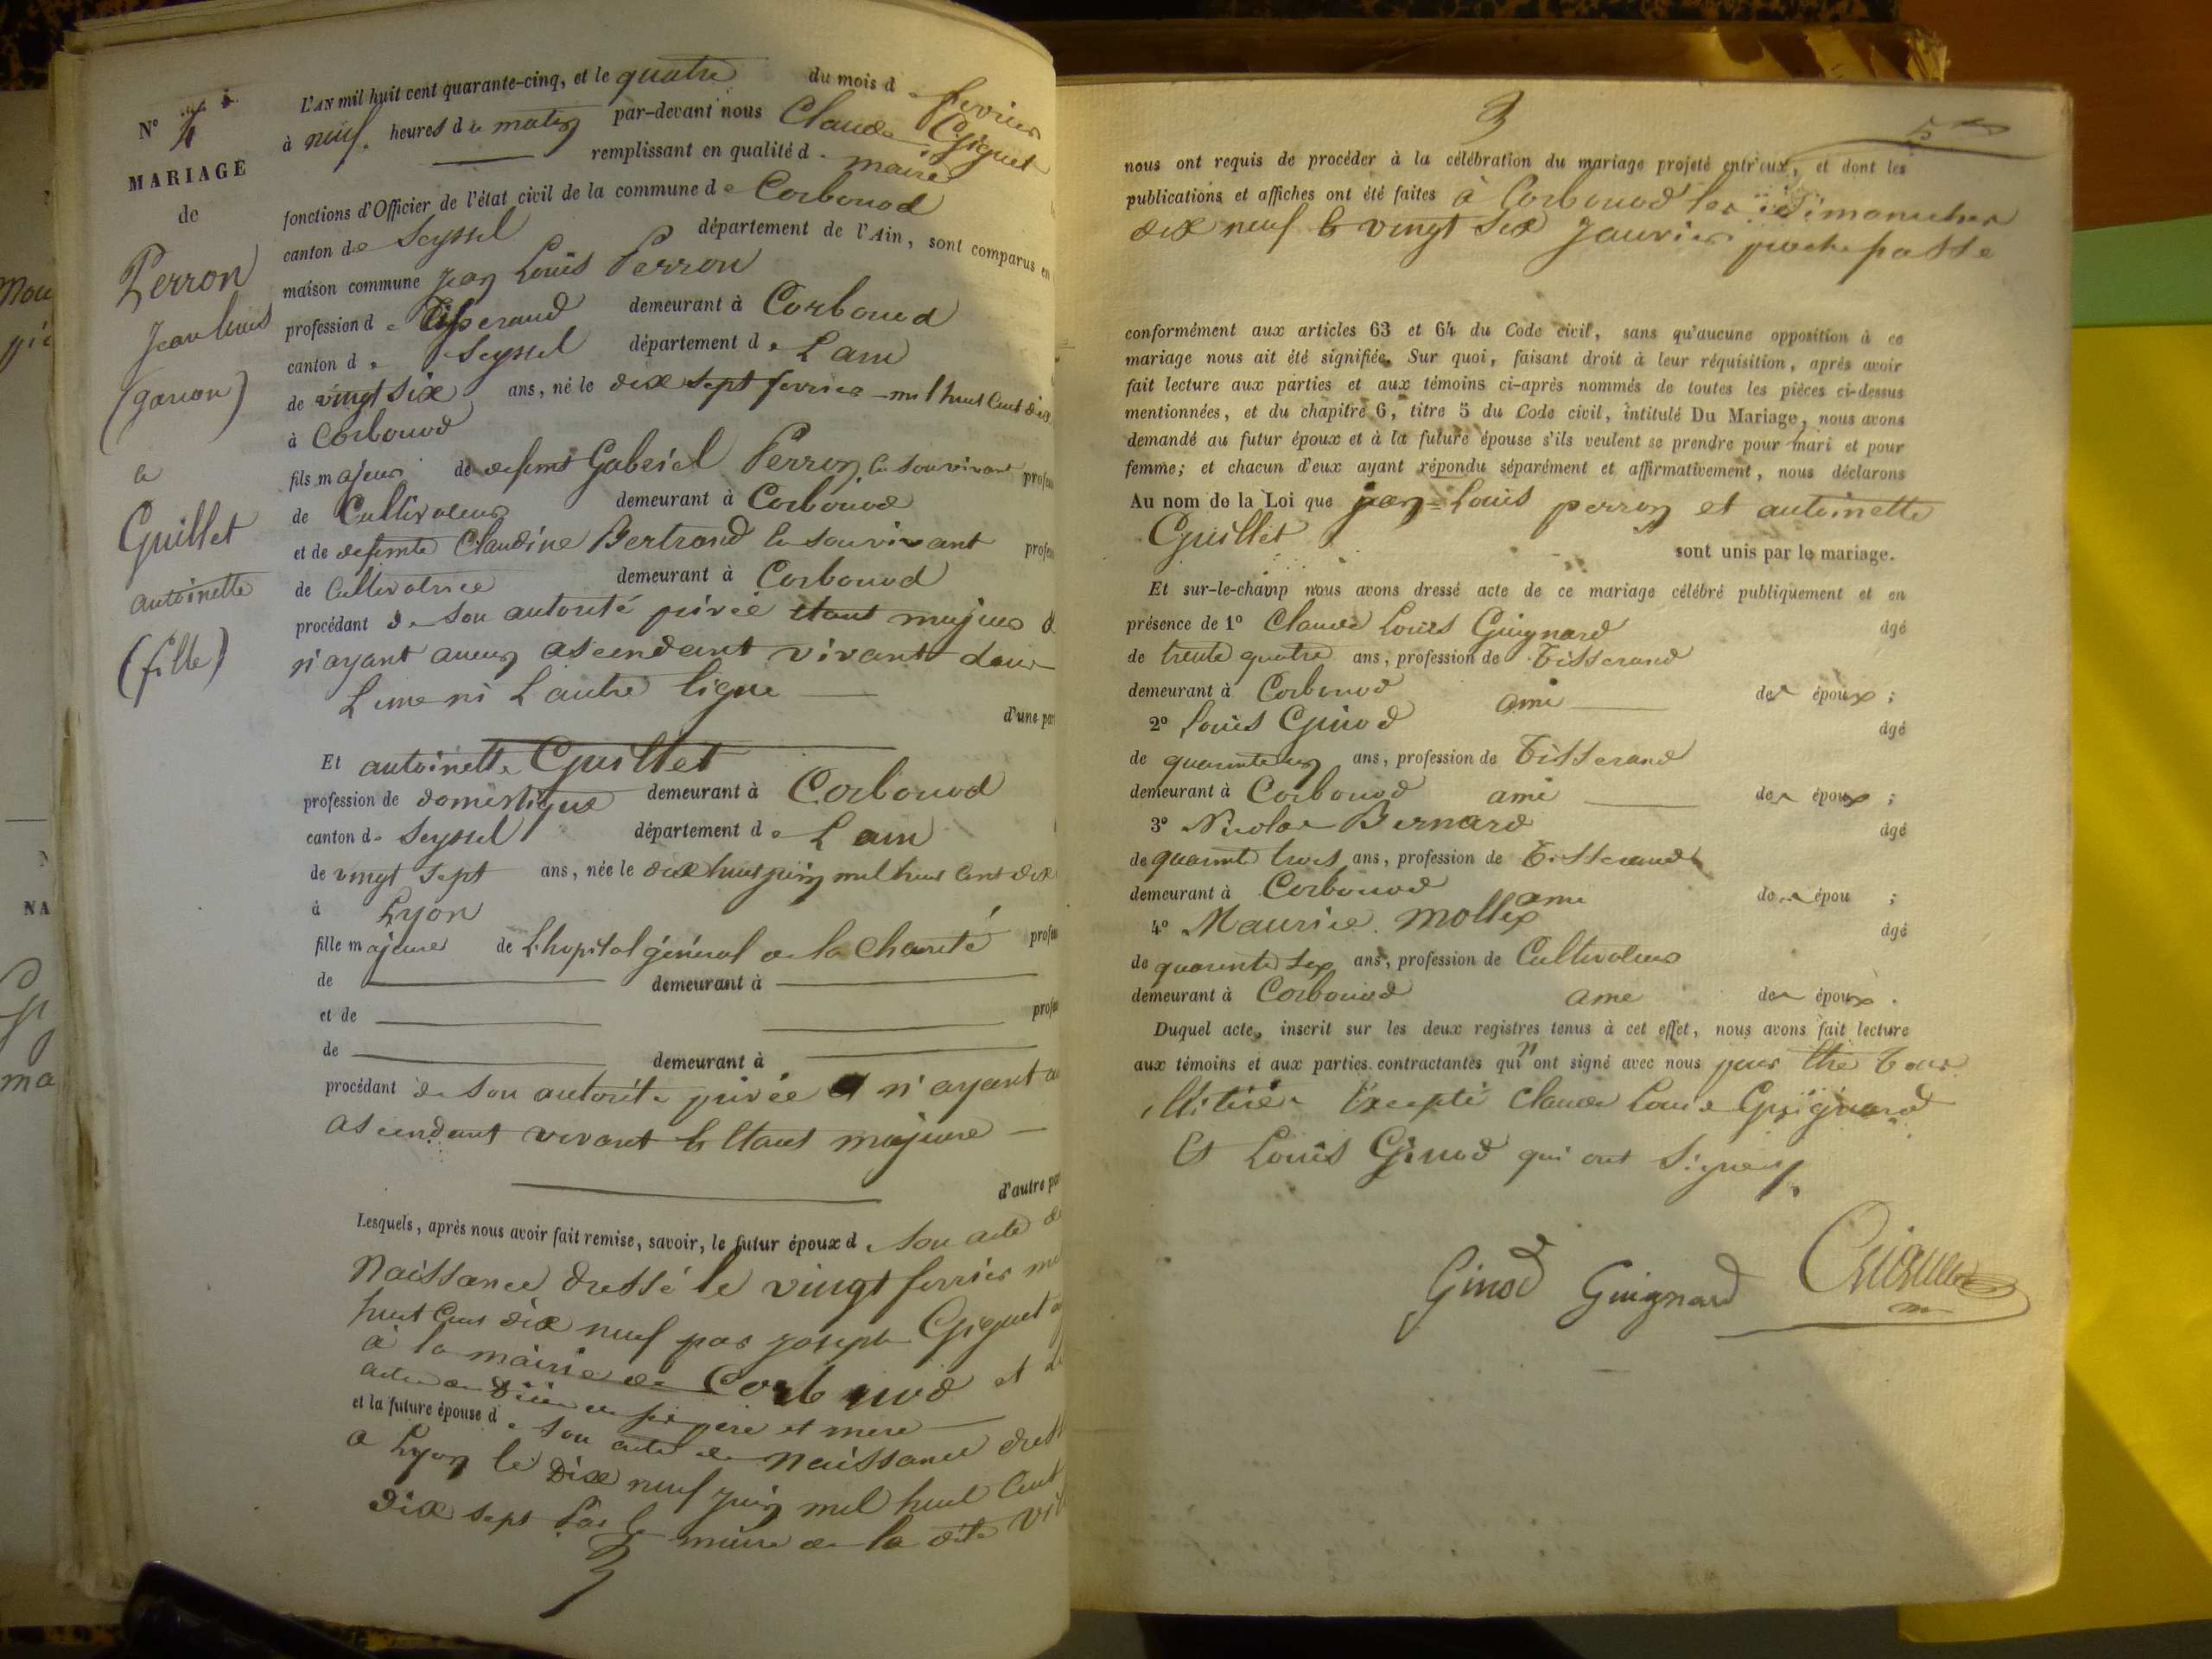 N° 4
MARIAGE
de
Perron
Jean louis
(garçon)
a
Guillet
antoinette
(fille)
L'AN mil huit cent quarante-cinq, et le quatre du mois d e fevrier
à neuf heures du matin par-devant nous Claude Giguet
remplissant en qualité d e maire
fonctions d'Officier de l'état civil de la commune de Corbonod
canton de Seyssel département de l'Ain, sont comparus en
maison commune jean Louis Perron
profession de Tisserand demeurant à Corbonod
canton de Seyssel département de Lain
de vingt six ans, né le dix sept fevrier mil huit Cent dix
à Corbonod
fils majeur de defunt Gabriel Perron le Souvivant profes
de Cultivateur demeurant à Corbonod
et de defunte Claudine Bertrand le Souvivant profes
de Cultivatrice demeurant à Corbonod
procédant de Son autorité privée étant majeur &
n'ayant aucun ascendant vivant dans
L'une ni L'autre ligne
d'une par
Et antoinette Guillet
profession de domestique demeurant à Corbonod
canton de Seyssel département de Lain
de vingt Sept ans, née le dix huit juin mil huit Cent dix
à Lyon
fille majeure de L'hopital général de la Charité profes
de demeurant à
et de profes
de demeurant à
procédant de Son autorité privée et n'ayant au
ascendant vivant & étant majeure
d'autre par
Lesquels, après nous avoir fait remise, savoir, le futur époux de Son acte de
Naissance dressé le vingt fevrier mil
huit Cent dix neuf par joseph Giguet
à la mairie de Corbonod et
père et mere
et la future épouse de Son acte de Naissance dress
a Lyon le Dix neuf juin mil huit Cent
dix sept Par le maire de la dite vil
3
5
nous ont requis de procéder à la célébration du mariage projeté entr'eux, et dont les
publications et affiches ont été faites à Corbonod les dimanches
dix neuf & vingt Six Janvier proche passé
conformément aux articles 63 et 64 du Code civil, sans qu'aucune opposition à ce
mariage nous ait été signifiée. Sur quoi, faisant droit à leur réquisition, après avoir
fait lecture aux parties et aux témoins ci-après nommés de toutes les pièces ci-dessus
mentionnées, et du chapitre 6, titre 5 du Code civil, intitulé Du Mariage, nous avons
demandé au futur époux et à la future épouse s'ils veulent se prendre pour mari et pour
femme; et chacun d'eux ayant répondu séparément et affirmativement, nous déclarons
Au nom de la Loi que jean Louis perron et antoinette
Guillet
sont unis par le mariage.
Et sur-le-champ nous avons dressé acte de ce mariage célébré publiquement et en
présence de 1° Claude Louis Guignard âgé
de trente quatre ans, profession de Tisserand
demeurant à Corbonod ami des époux;
2° Louis Ginod âgé
de quarante un ans, profession de Tisserand
demeurant à Corbonod ami des époux;
3° Nicolas Bernard âgé
de quarante trois ans, profession de Tisserand
demeurant à Corbonod ami des épou ;
4° Maurice Mollex âgé
de quarante Six ans, profession de Cultivateur
demeurant à Corbonod ami des époux.
Duquel acte, inscrit sur les deux registres tenus à cet effet, nous avons fait lecture
aux témoins et aux parties contractantes qui n'ont signé avec nous pour être tous
illitérés Excepté Claude Louis Guignard
Et Louis Ginod qui ont Signés
Ginod Guignard